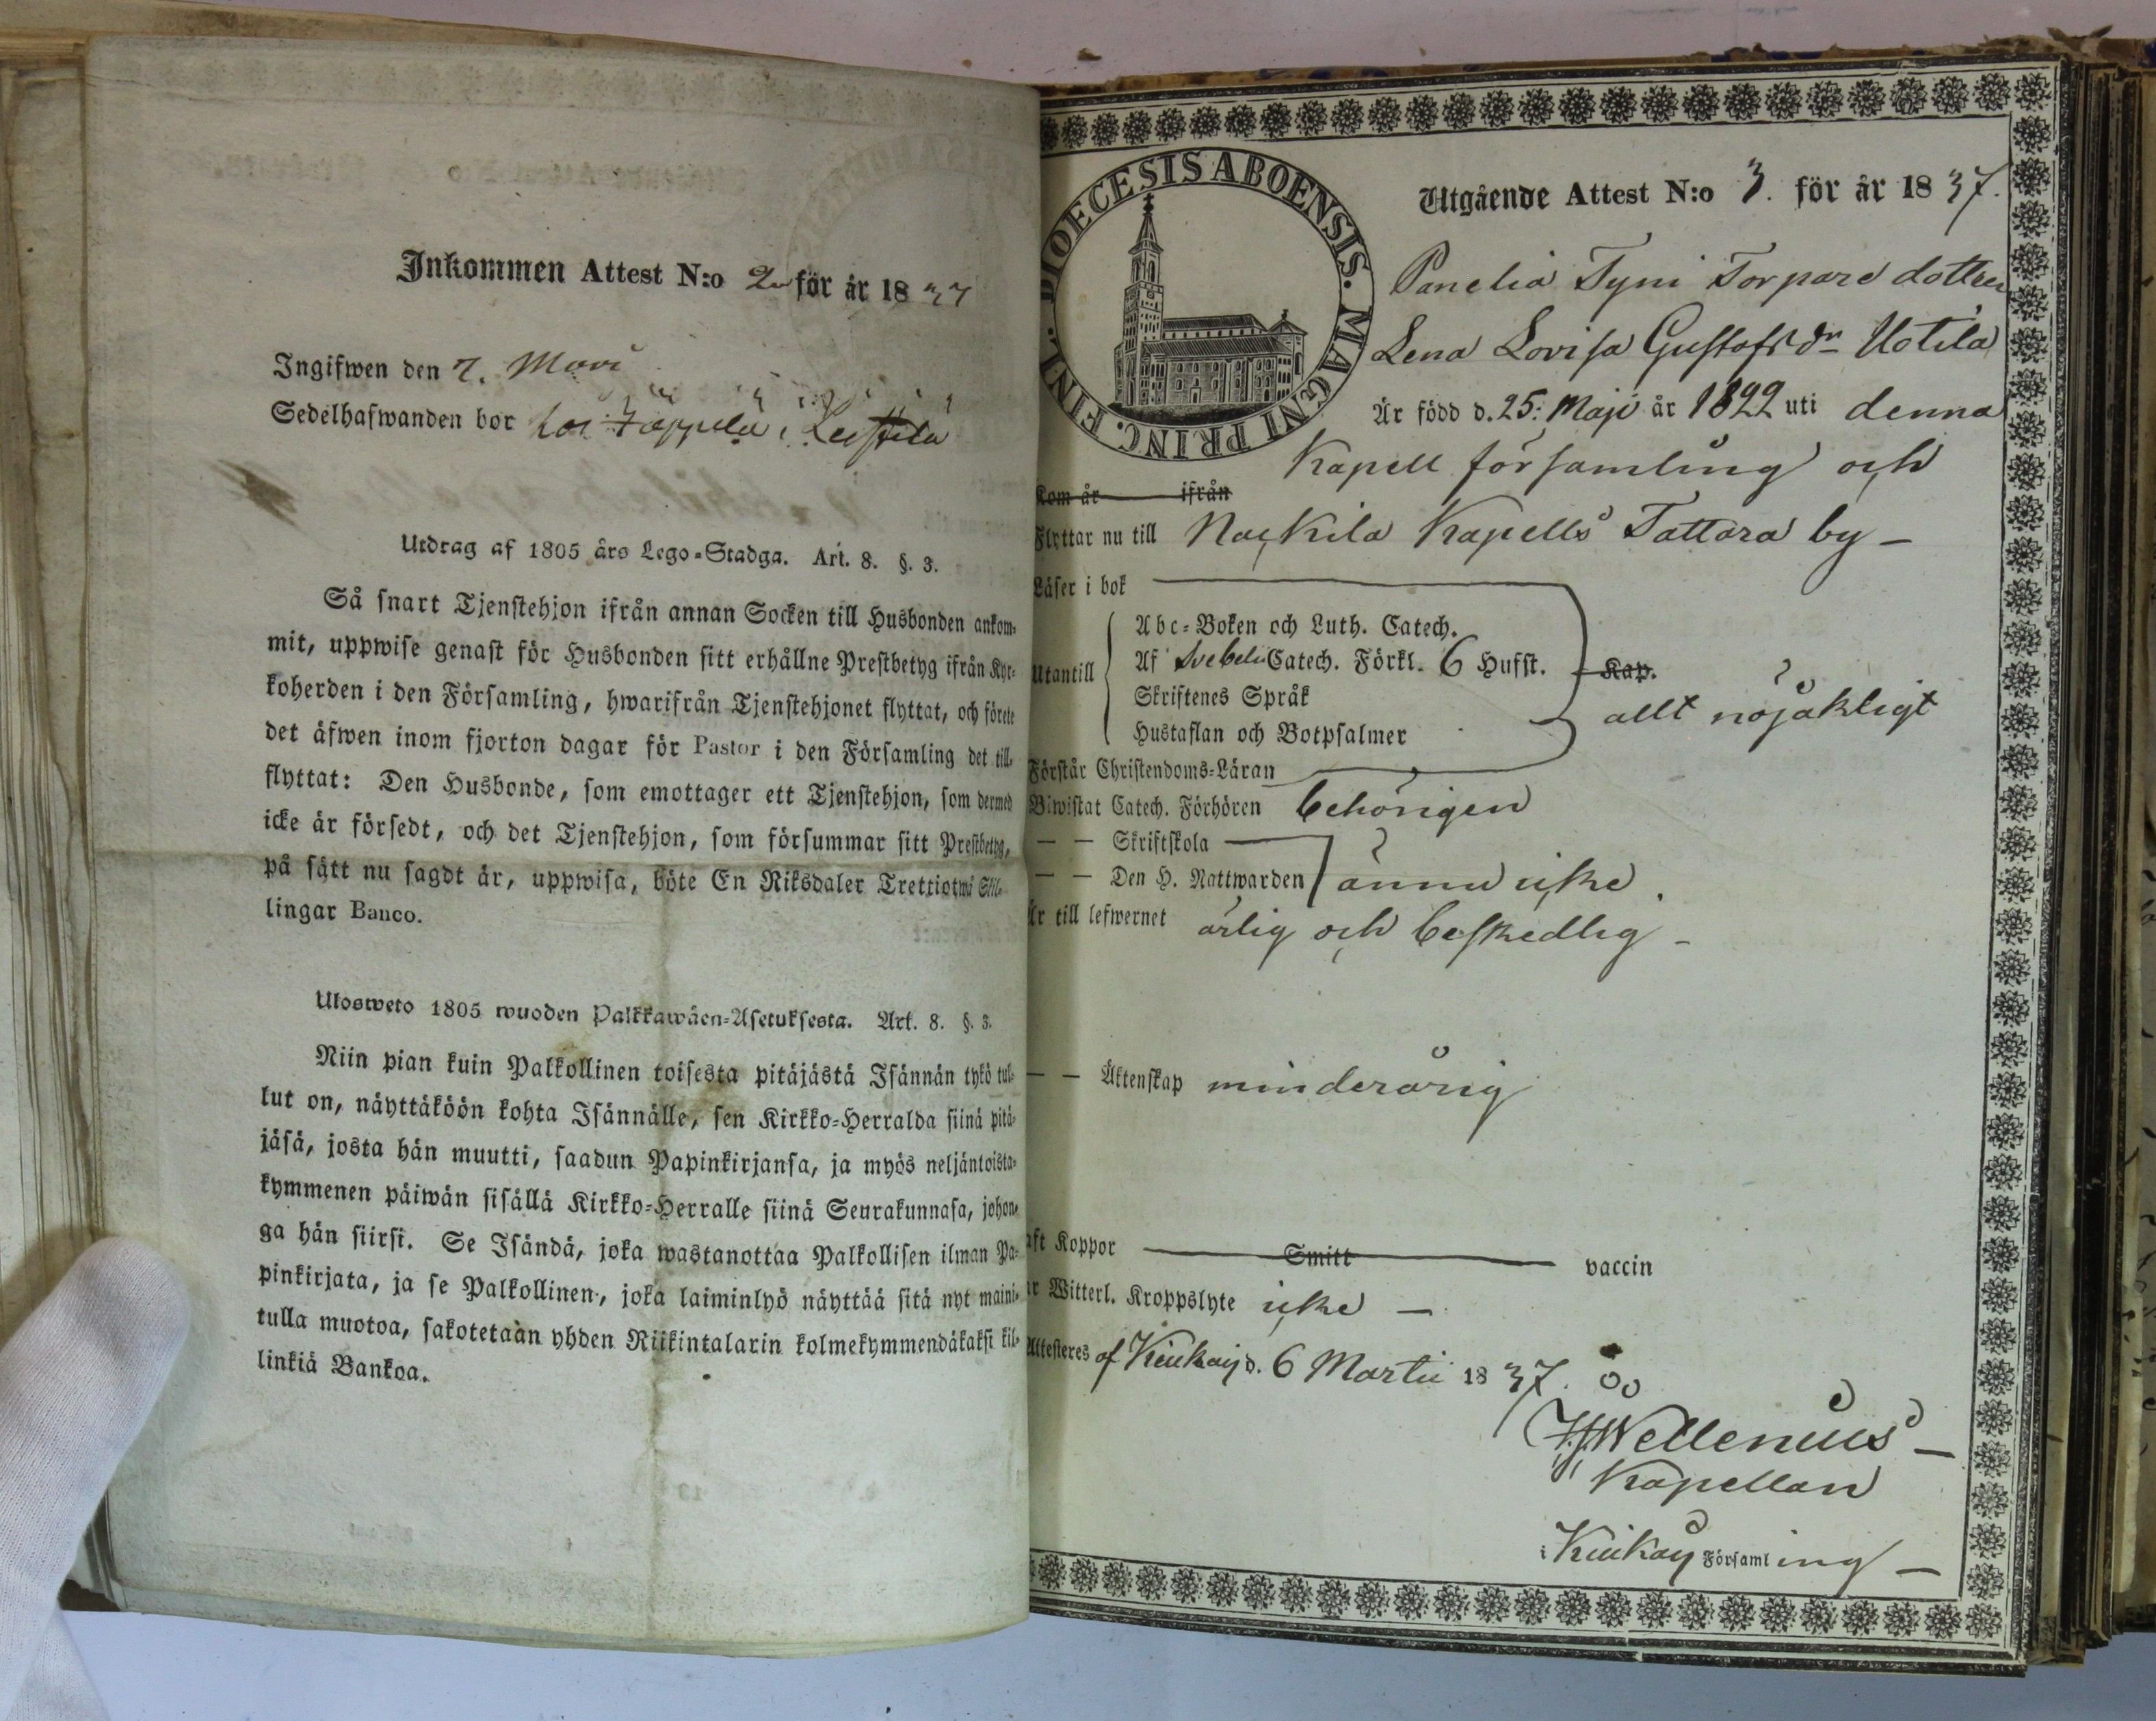 Inkommen Attest N:o 2 för år 1837
Ingifwen den 7. Mars
Sedelhafwanden bor hos i Leistilä
Utdrag af 1805 års Lego-Stadga. Art. 8. §. 3.
Så snart Tjenstehjon ifrån annan Socken till Husbonden ankom-
mit, uppwise genast för Husbonden sitt erhållne Prestbetyg ifrån Kyr-
koherden i den Församling, hwarifrån Tjenstehjonet flyttat, och förete
det äfwen inom fjorton dagar för Pastor i den Församling det till-
flyttat: Den Husbonde, som emottager ett Tjenstehjon, som dermed
icke är försedt, och det Tjenstehjon, som försummar sitt Prestbetyg,
på sätt nu sagdt är, uppwisa, böte En Riksdaler Trettiotwå Skil-
lingar Banco.
Ulosweto 1805 wuoden Palkkawäen-Asetuksesta. Art. 8. §. 3.
Niin pian kuin Palkollinen toisesta pitäjästä Isännän tykö tul-
lut on, näyttäköön kohta Isännälle, sen Kirkko-Herralda siinä pitä-
jäsä, josta hän muutti, saadun Papinkirjansa, ja myös neljäntoista-
kymmenen päiwän sisällä Kirkko-Herralle siinä Seurakunnasa, johon-
ga hän siirsi. Se Isändä, joka wastanottaa Palkollisen ilman Pa-
pinkirjata, ja se Palkollinen, joka laiminlyö näyttää sitä nyt maini-
tulla muotoa, sakotetaan yhden Riikintalarin kolmekymmendäkaksi kil-
linkiä Bankoa.
DIOECESIS ABOENSIS. MAGNI PRINC. FINL.
Utgående Attest N:o 3. för år 1837.
Panelia Tyni Torpare dottren
Lena Lovisa Gustafsdr Uotila
Är född d. 25: Maji år 1822 uti denna
Kapell församling och
Kom år ifrån
Flyttar nu till Nackila Kapells Tattara by –
Läser i bok
Utantill
Abc-Boken och Luth. Catech.
Af Svebeli Catech. Förkl. 6 Hufst. Kap.
Skriftenes Språk
allt nöjakligt
Hustaflan och Botpsalmer
Förstår Christendoms-Läran
Biwistat Catech. Förhören behörigen
— — Skriftskola
— — Den H. Nattwarden ännu icke.
Är till lefwernet ärlig och beskedlig –
— — Äktenskap minderårig
aft Koppor Smitt vaccin
ar Witterl. Kroppslyte icke –
Attesteres af Kiukais d. 6 Martii 1837.
Wellenius –
Kapellan
i Kiukais Församling –